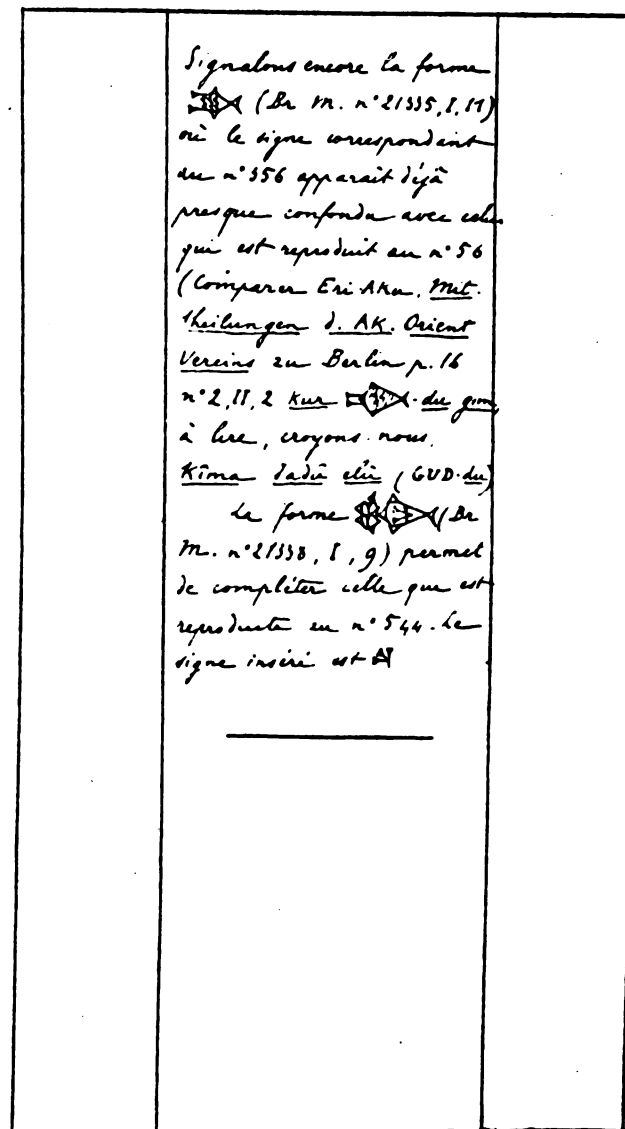 Signalons encore la forme
(Br M. n° 21335, I, 11)
où le signe correspondant
au n° 356 apparait déjà
presque confondu avec celui
qui est reproduit au n° 56
(Comparer Eri-Aku. Mit-
theilungen d. AK. Orient
Vereins zu Berlin p. 16
n° 2, II, 2 kur -du gim,
à lire, croyons-nous,
Kîma šadû elû (GUD-du)
La forme (Br
M. n° 21338, I, 9) permet
de compléter celle que est
reproduite au n° 544. Le
signe inséré est